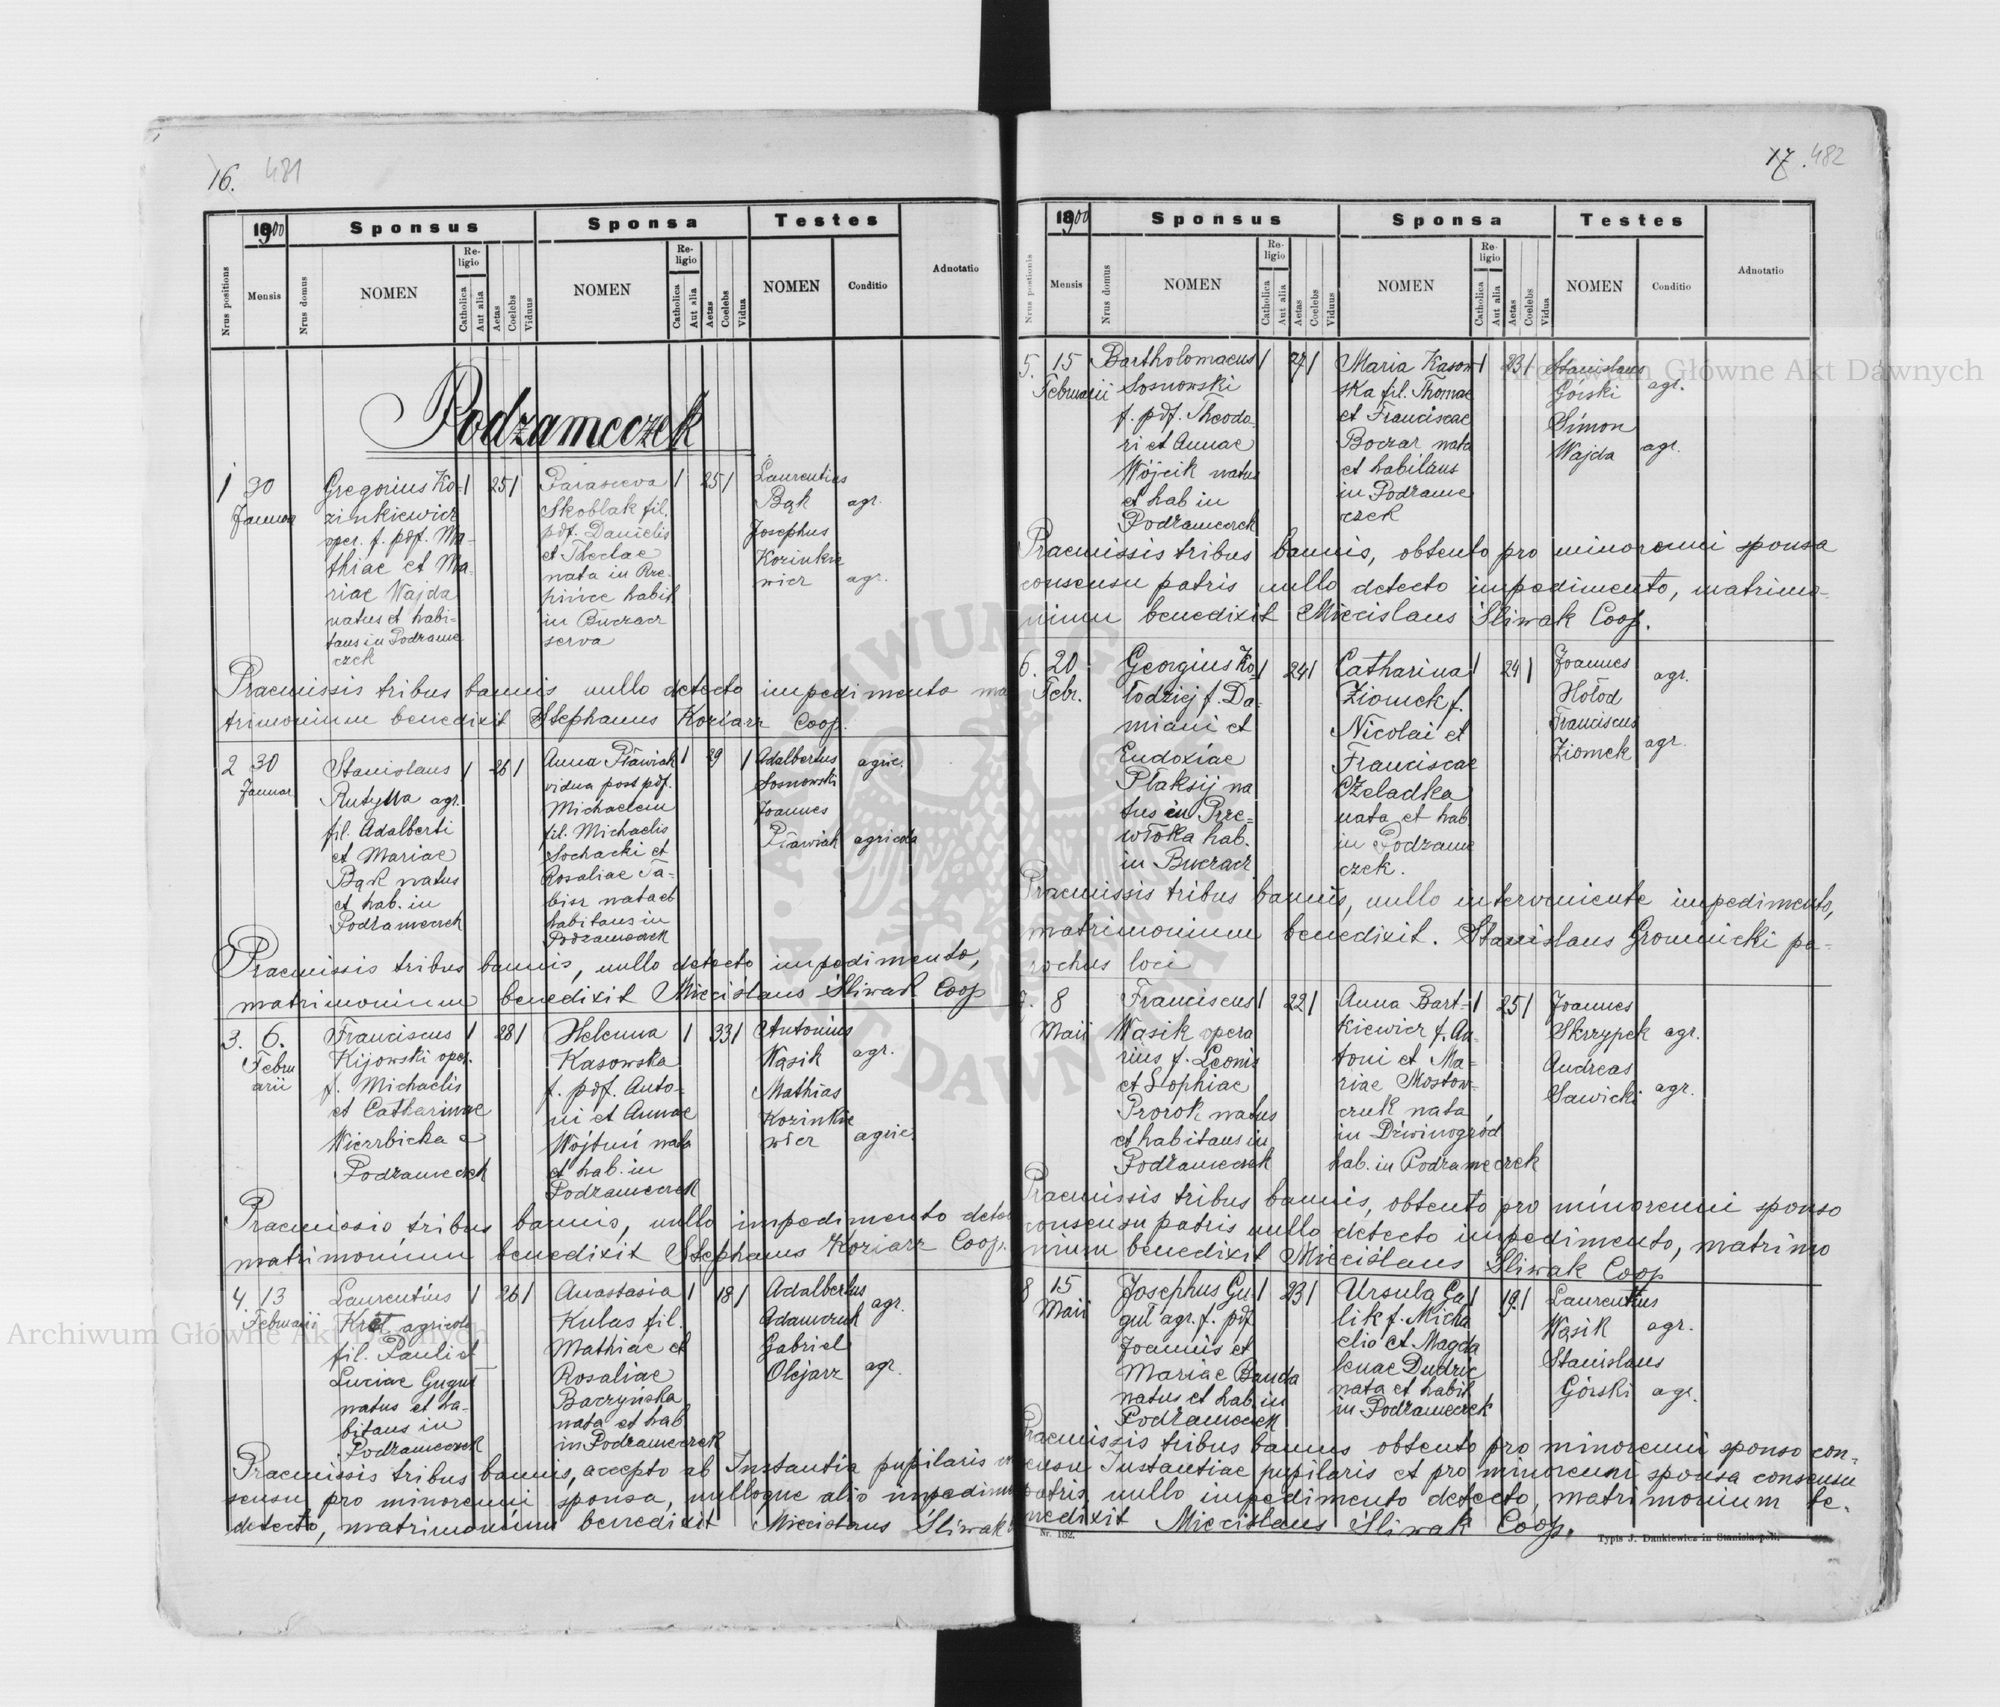 16. 481
1900
Sponsus
Sponsa
Testes
Adnotatio
Nrus positions
Mensis
Nrus domus
NOMEN
Religio
Catholica
Aut alia
Aetas
Coelebs
Viduus
NOMEN
Religio
Catholica
Aut alia
Aetas
Coelebs
Vidua
NOMEN
Conditio
Podzameczek
1 30 Januar
Gregorius Ko-
zinkiewicz
oper. f. pdf. Ma-
thiae et Ma-
riae Wajda
natus et habi-
tans in Podzame
czek
1 25 1
Parasceva
Skoblak fil.
pdf. Danielis
et Theclae
nata in Rze-
pińce habit
in Buczacz
serva
1 25 1
Laurentius
Bąk agr.
Josephus
Kozinkie
wicz agr.
Praemissis tribus bannis nullo detecto impedimento ma
trimonium benedixit Stephanus Koziarz Coop.
2 30
Januar
Stanislaus
Rutylla agr.
fil. Adalberti
et Mariae
Bąk natus
et hab. in
Podzameczek
1 26 1
Anna Pławiak
vidua post pdf.
Michaelem
fil. Michaelis
Sochacki et
Rosaliae Ta-
bisz nata et
habitans in
Podzameczek
1 29 1
Adalbertus agric.
Sosnowski
Joannes
Pławiak agricola
Praemissis tribus bannis, nullo detecto impedimento,
matrimonium benedixit Miecislaus Śliwak Coop
3. 6.
Febru
arii
Franciscus
Kijowski oper.
f. Michaelis
et Catharinae
Wierzbicka e
Podzameczek
1 28 1
Helenna
Kasowska
f. pdf. Anto-
ni et Annae
Wojtuń nata
et hab. in
Podzameczek
1 33 1
Antonius
Wąsik agr.
Mathias
Kozinkie
wicz agric.
Praemissis tribus bannis, nullo impedimento detec
matrimonium benedixit Stephanus Koziarz Coop.
4. 13
Februarii
Laurentius
Kret agricola
fil. Pauli et
Luciae Guguł
natus et ha-
bitans in
Podzameczek
1 26 1
Anastasia
Kulas fil.
Mathiae et
Rosaliae
Baczyńska
nata et hab
in Podzameczek
1 18 1
Adalbertus
Adamczuk agr.
Gabriel
Olejarz agr.
Praemissis tribus bannis, accepto ab Instantia pupilaris
sensu pro minorenni sponsa, nulloque alio impedim
detecto, matrimonium benedixit Miecislaus Śliwak
17. 482
1900
Sponsus
Sponsa
Testes
Adnotatio
Nrus postionis
Mensis
Nrus domus
NOMEN
Religio
Catholica
Aut alia
Aetas
Coelebs
Viduus
NOMEN
Religio
Catholica
Aut alia
Aetas
Coelebs
Vidua
NOMEN
Conditio
5. 15
Februarii
Bartholomaeus
Sosnowski
f. pdf. Theodo-
ri et Annae
Wójcik natus
et hab in
Podzameczek
1 27 1
Maria Kasow
ska fil. Thomae
et Franciscae
Boczar nata
et habitans
in Podzame
czek
1 23 1
Stanislaus
Górski agr.
Simon
Wajda agr.
Praemissis tribus bannis, obtento pro minorenni sponsa
consensu patris nullo detecto impedimento, matrimo-
nium benedixit Miecislaus Śliwak Coop.
6. 20
Febr.
Georgius Ko-
łodziej f. Da-
miani et
Eudoxiae
Płaksij na
tus in Prze-
włoka hab.
in Buczacz
1 24 1
Catharina
Ziomek f.
Nicolai et
Franciscae
Czeladka
nata et hab
in Podzame
czek.
1 24 1
Joannes agr.
Hołod
Franciscus
Ziomek agr.
Praemissis tribus bannis, nullo interveniente impedimento,
matrimonium benedixit. Stanislaus Gromnicki pa-
rochus loci
7. 8
Maii
Franciscus
Wąsik opera
rius f. Leonis
et Sophiae
Prorok natus
et habitans in
Podzameczek
1 22 1
Anna Bart-
kiewicz f. An-
toni et Ma-
riae Mostow-
czuk nata
in Dźwinogród
hab. in Podzameczek
1 25 1
Joannes
Skrzypek agr.
Andreas
Sawicki agr.
Praemissis tribus bannis, obtento pro minorenni sponso
consensu patris nullo detecto impedimento, matrimo
nium benedixit Miecislaus Śliwak Coop
8 15
Maii
Josephus Gu-
guł agr. f. pdf
Joannis et
Mariae Banda
natus et hab. in
Podzameczek
1 23 1
Ursula Ga
lik f. Micha
elis et Magda
lenae Dudzic
nata et habit
in Podzameczek
1 19 1
Laurentius
Wąsik agr.
Stanislaus
Górski agr.
Praemissis tribus bannis obtento pro minorenni sponso con-
sensu Instantiae pupilaris et pro minorenni sponsa consensu
patris nullo impedimento detecto, matrimonium be-
nedixit Miecislaus Śliwak Coop.
Nr. 182.
Typis J. Dankiewicz in Stanislaopoli.
Archiwum Główne Akt Dawnych
Archiwum Główne Akt Dawnych